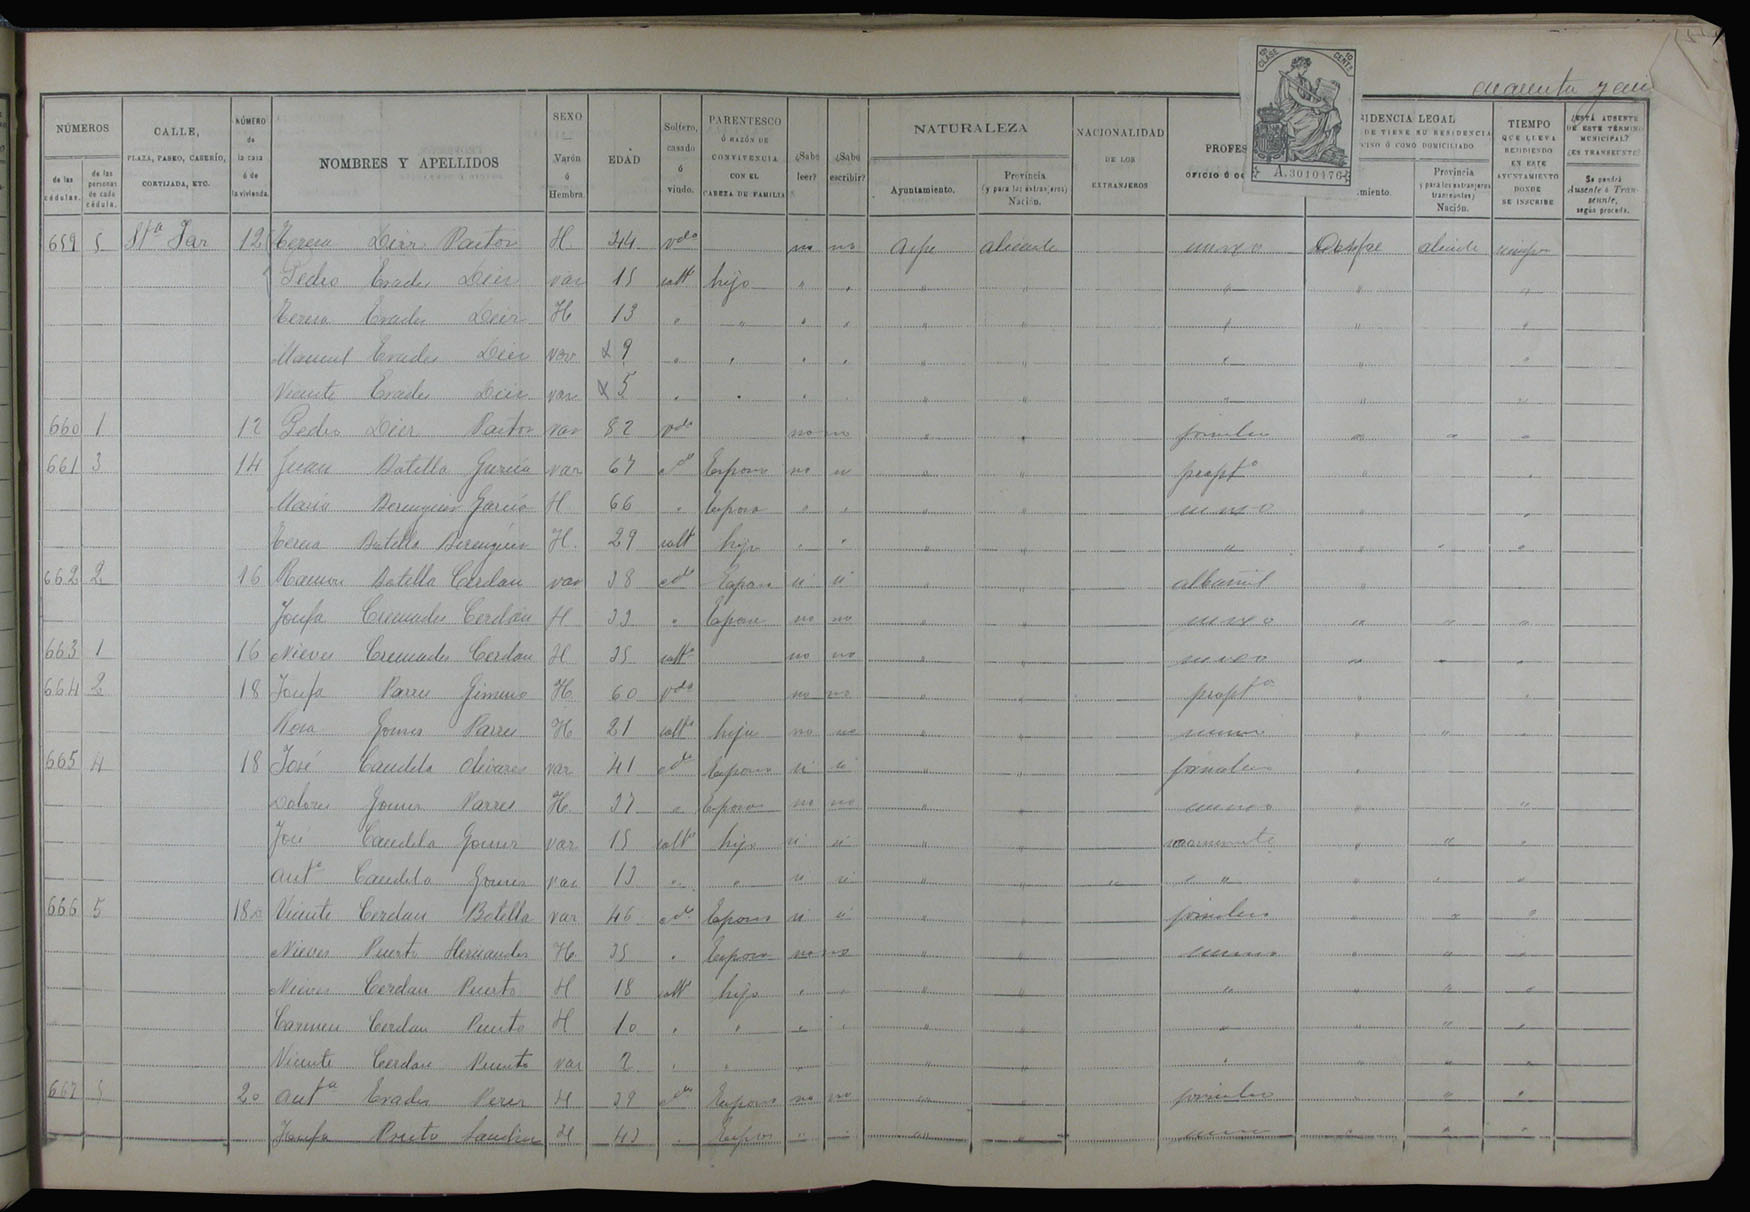 cuarenta y
8ª CLASE 10 CENTS
A.3010476
NÚMEROS
de las cédulas.
de las personas de cada cédula.
CALLE,
PLAZA, PASEO, CASERÍO,
CORTIJADA, ETC.
NÚMERO
de
la casa
ó de
la vivienda.
NOMBRES Y APELLIDOS
SEXO
Varón
ó
Hembra.
EDAD
Soltero,
casado
ó
viudo.
PARENTESCO
Ó RAZÓN DE
CONVIVENCIA
CON EL
CABEZA DE FAMILIA
¿Sabe
leer?
¿Sabe
escribir?
NATURALEZA
Ayuntamiento.
Provincia
(y para los extranjeros)
Nación.
NACIONALIDAD
DE LOS
EXTRANJEROS
PROFES
OFICIO Ó OC
SIDENCIA LEGAL
DE TIENE SU RESIDENCIA
CINO Ó COMO DOMICILIADO
miento.
Provincia
(y para los extranjeros
transeuntes)
Nación.
TIEMPO
QUE LLEVA
RESIDIENDO
EN ESTE
AYUNTAMIENTO
DONDE
SE INSCRIBE
¿ESTÁ AUSENTE
DE ESTE TÉRMINO
MUNICIPAL?
¿ES TRANSEUNTE?
Se pondrá
Ausente ó Tran-
seunte,
según proceda.
659 5 12 Teresa Dier Pastor H 44 vda no no Aspe Alicante su sexo Alicante siempre
Pedro Erades Dier var 15 soltº hijo " " " " " " "
Teresa Erades Dier H 13 " " " " " " " " "
Manuel Erades Dier var 9 " " " " " " " " "
Vicente Erades Dier var 5 " " " " " " " " "
660 1 12 Pedro Dier Pastor var 82 vdo no no " " jornalero " " "
661 3 14 Juan Botella García var 67 cdo Esposo no no " " proptº " "
María Berenguer García H 66 " Esposa " " " " su sexo " "
Teresa Botella Berenguer H. 29 soltª hija " " " " " " " "
662 2 16 Ramon Botella Cerdan var 38 cdo Esposo si si " " albañil "
Josefa Cremades Cerdán H 33 " Esposa no no " " su sexo " " "
663 1 16 Nieves Cremades Cerdan H 35 soltª no no " " su sexo " " "
664 2 18 Josefa Parres Gimeno H 60 vda no no " " proptª " " "
Rosa Gomis Parres H 21 soltª hija no no " " su sexo " " "
665 4 18 José Candela Olivares var 41 cdo Esposo si si " " jornalero "
Dolores Gomis Parres H 37 " Esposa no no " " su sexo " "
José Candela Gomis var 15 soltº hijo si si " " " " "
Antº Candela Gomis var 13 " " si si " " " " " " "
666 5 18 Vicente Cerdan Botella var 46 cdo Esposo si si " " jornalero " " "
Nieves Puerto Hernandez H 35 " Esposa no no " " su sexo " " "
Nieves Cerdan Puerto H 18 soltª hija " " " " " " " "
Carmen Cerdan Puerto H 10 " " " " " " " " " "
Vicente Cerdan Puerto var 2 " " " " " " " " "
667 5 20 Antª Erades Perez H 39 Esposo no no " " jornalero " " "
Josefa Puerto H 42 " Esposa " " " " " " "